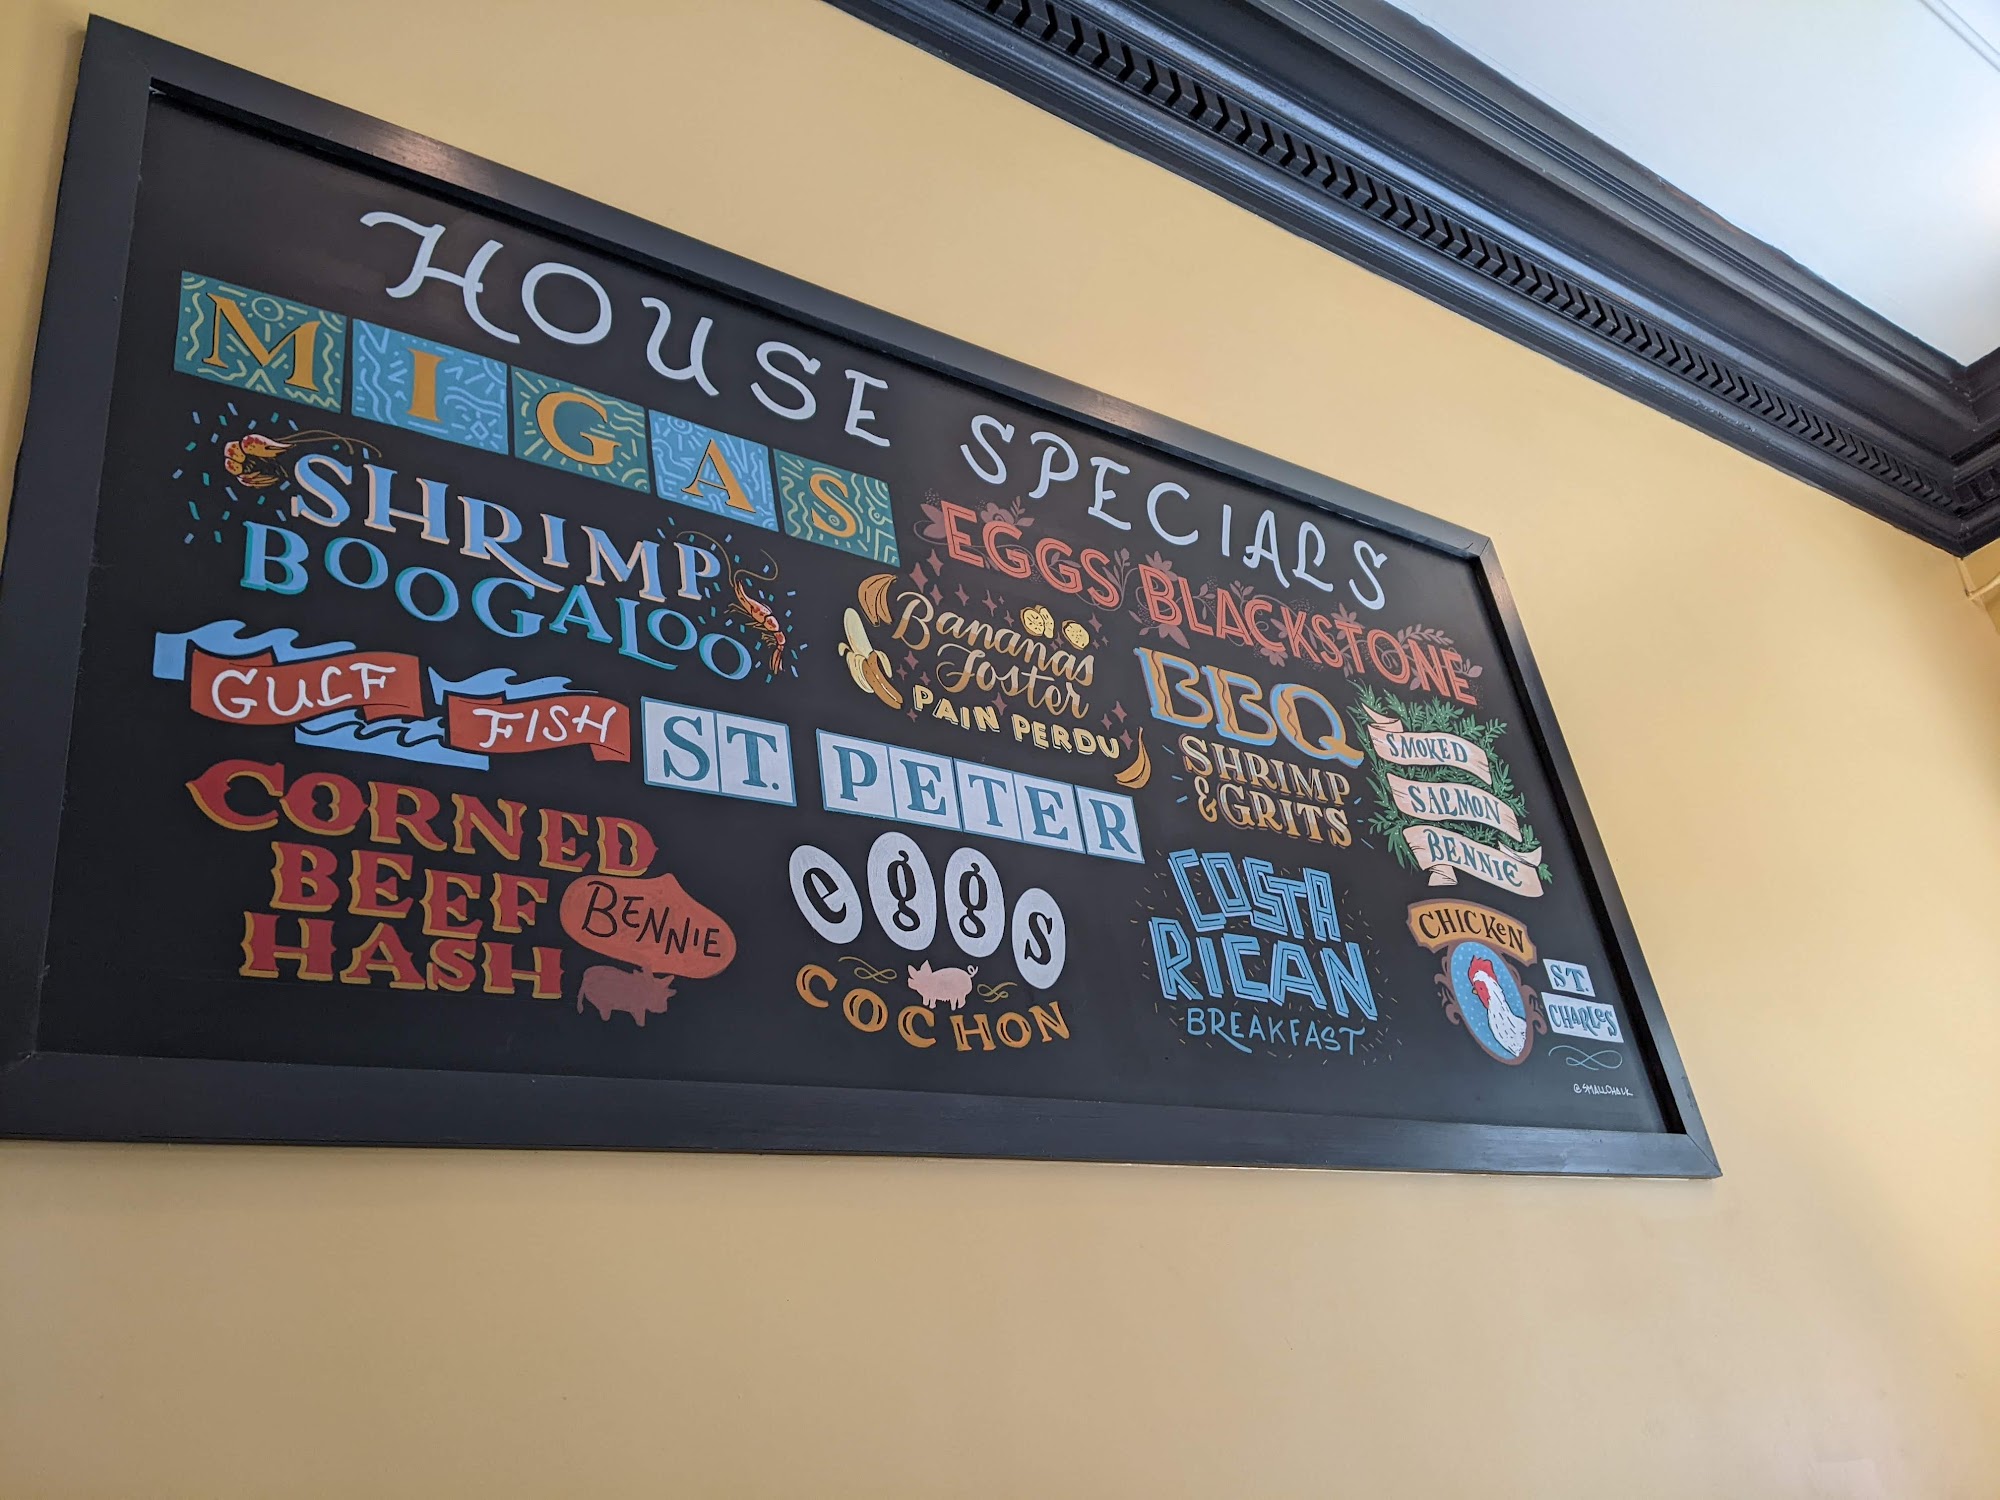 HOUSE SPECIALS
MIGAS
SHRIMP
BOOGALOO
EGGS BLACKSTONE
Bananas
Foster
PAIN PERDU
GULF FISH
ST. PETER
BBQ
SHRIMP
& GRITS
SMOKED
SALMON
BENNIE
CORNED
BEEF
HASH
BENNIE
eggs
COCHON
COSTA
RICAN
BREAKFAST
CHICKeN
ST.
CHARLeS
@SMALLCHALK